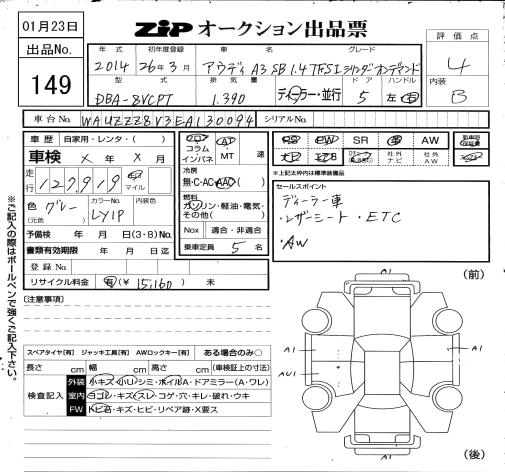 01月23日
ZIP オークション出品票
出品No.
149
評価点
4
内装
B
年式 初年度登録 車名 グレード
2014 26年3月 アウディ A3 SB 1.4 TFSI シリンダーオンデマンド
型式 排気量 ドア ハンドル
DBA-8VCPT 1.390 ディーラー・並行 5 左・右
車台No. WAUZZZ8V3EA130094 シリアルNo.
車歴 自家用・レンタ・( )
車検 × 年 × 月
走行 127,919 km マイル
色 グレー カラーNo. LY1P 内装色
(元色)
予備検 年 月 日(3・8)No.
書類有効期限 年 月 日迄
登録No.
リサイクル料金 有(¥ 15,160 ) 未
フロア コラム インパネ AT MT 速
冷房
無・C・AC・AAC( )
燃料
ガソリン・軽油・電気・その他( )
Nox 適合・非適合
乗車定員 5 名
PS PW SR 革 AW 新車時保証書
ナビ TV 社外ナビ 社外AW
★上記太枠内は標準装備品
セールスポイント
ディーラー車
・レザーシート・ETC
・AW
[注意事項]
スペアタイヤ[有] ジャッキ工具[有] AWロックキー[有] ある場合のみ〇
長さ cm 幅 cm 高さ cm (車検証上の寸法)
検査記入
外装 小キズ・小U・シミ・ホイルA・ドアミラー(A・ワレ)
室内 ヨゴレ・キズ・スレ・コゲ・穴・キレ・破れ・ウキ
FW トビ石・キズ・ヒビ・リペア跡・X要ス
(前)
A1
A1
AU1
A1
A1
(後)
※ご記入の際はボールペンで強くご記入下さい。